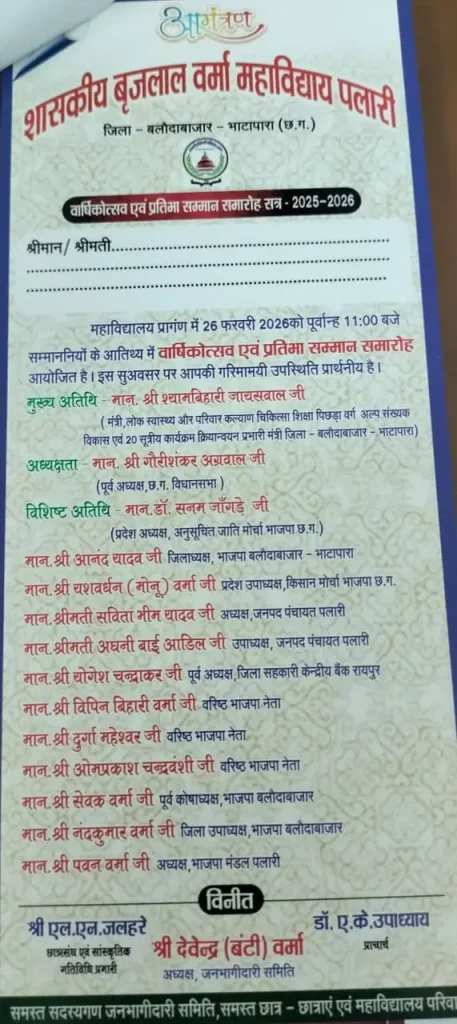 आमंत्रण
शासकीय बृजलाल वर्मा महाविद्याय पलारी
जिला – बलौदाबाजार – भाटापारा (छ.ग.)
वार्षिकोत्सव एवं प्रतिभा सम्मान समारोह सत्र - 2025-2026
श्रीमान/ श्रीमती.......................................................
.......................................................
.......................................................
महाविद्यालय प्रागंण में 26 फरवरी 2026को पूर्वान्ह 11:00 बजे
सम्माननियों के आतिथ्य में वार्षिकोत्सव एवं प्रतिभा सम्मान समारोह
आयोजित है। इस सुअवसर पर आपकी गरिमामयी उपस्थिति प्रार्थनीय है।
मुख्य अतिथि – मान. श्री श्यामबिहारी जायसवाल जी
( मंत्री,लोक स्वास्थ्य और परिवार कल्याण चिकित्सा शिक्षा पिछड़ा वर्ग अल्प संख्यक
विकास एवं 20 सूत्रीय कार्यक्रम क्रियान्वयन प्रभारी मंत्री जिला – बलौदाबाजार – भाटापारा)
अध्यक्षता – मान. श्री गौरीशंकर अग्रवाल जी
(पूर्व अध्यक्ष,छ.ग. विधानसभा )
विशिष्ट अतिथि – मान.डॉ. सनम जाँगड़े जी
(प्रदेश अध्यक्ष, अनुसूचित जाति मोर्चा भाजपा छ.ग.)
मान.श्री आनंद यादव जी जिलाध्यक्ष, भाजपा बलौदाबाजार – भाटापारा
मान.श्री यशवर्धन (मोनू) वर्मा जी प्रदेश उपाध्यक्ष,किसान मोर्चा भाजपा छ.ग.
मान.श्रीमती सविता भीम यादव जी अध्यक्ष,जनपद पंचायत पलारी
मान.श्रीमती अघनी बाई आडिल जी उपाध्यक्ष, जनपद पंचायत पलारी
मान.श्री योगेश चन्द्राकर जी पूर्व अध्यक्ष,जिला सहकारी केन्द्रीय बैंक रायपुर
मान.श्री विपिन बिहारी वर्मा जी वरिष्ठ भाजपा नेता
मान.श्री दुर्गा महेश्वर जी वरिष्ठ भाजपा नेता
मान.श्री ओमप्रकाश चन्द्रवंशी जी वरिष्ठ भाजपा नेता
मान.श्री सेवक वर्मा जी पूर्व कोषाध्यक्ष,भाजपा बलौदाबाजार
मान.श्री नंदकुमार वर्मा जी जिला उपाध्यक्ष,भाजपा बलौदाबाजार
मान.श्री पवन वर्मा जी अध्यक्ष,भाजपा मंडल पलारी
विनीत
श्री एल.एन.जलहरे
छात्रसंघ एवं सांस्कृतिक
गतिविधि प्रभारी
श्री देवेन्द्र (बंटी) वर्मा
अध्यक्ष, जनभागीदारी समिति
डॉ. ए.के.उपाध्याय
प्राचार्य
समस्त सदस्यगण जनभागीदारी समिति,समस्त छात्र – छात्राएं एवं महाविद्यालय परिवा